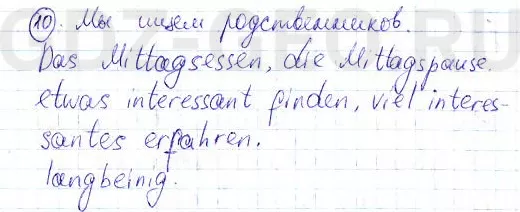 10. Мы ищем родственников.
Das Mittagsessen, die Mittagspause.
etwas interessant finden, viel interes-
santes erfahren.
langbeinig.